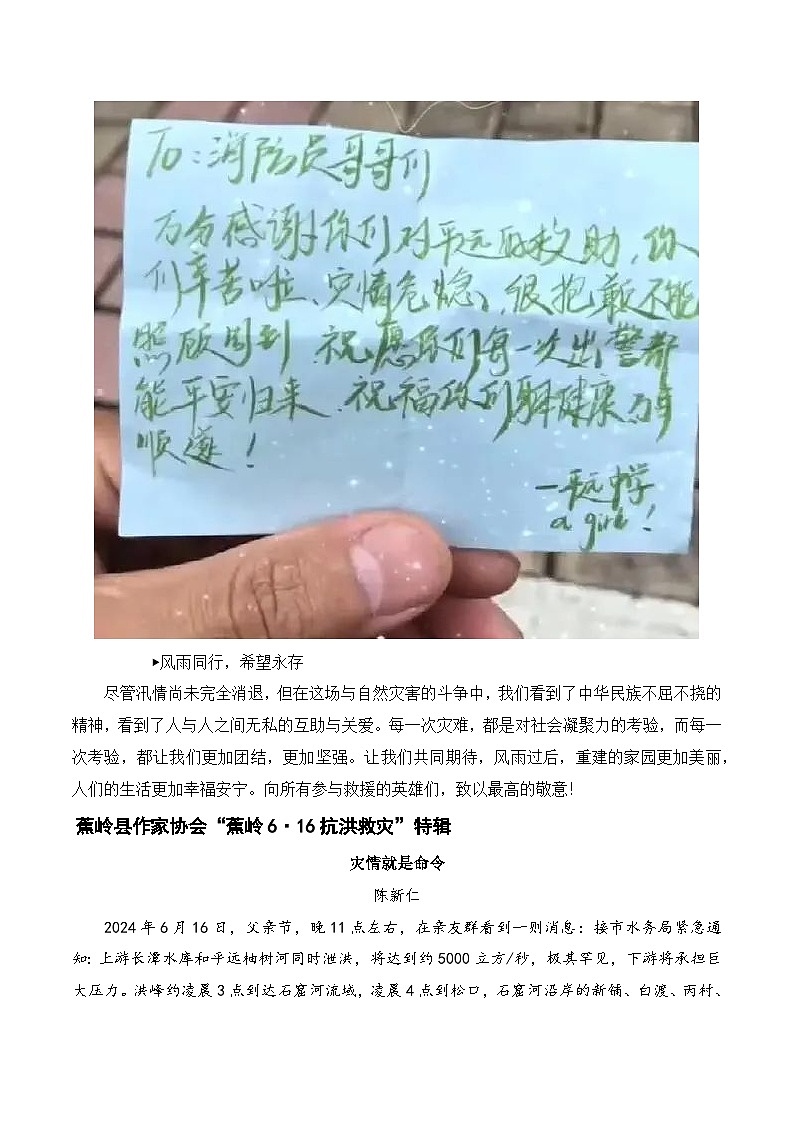 To：消防员哥哥们
万分感谢你们对平远的救助，你
们辛苦啦、灾情危急、很抱歉不能
照顾周到 祝愿你们每一次出警都
能平安归来、祝福你们身体健康 万事
顺遂！
一平远中学
a girl！
▶风雨同行，希望永存
尽管汛情尚未完全消退，但在这场与自然灾害的斗争中，我们看到了中华民族不屈不挠的
精神，看到了人与人之间无私的互助与关爱。每一次灾难，都是对社会凝聚力的考验，而每一
次考验，都让我们更加团结，更加坚强。让我们共同期待，风雨过后，重建的家园更加美丽，
人们的生活更加幸福安宁。向所有参与救援的英雄们，致以最高的敬意！
蕉岭县作家协会“蕉岭6·16抗洪救灾”特辑
灾情就是命令
陈新仁
2024年6月16日，父亲节，晚11点左右，在亲友群看到一则消息：接市水务局紧急通
知：上游长潭水库和平远柚树河同时泄洪，将达到约5000立方/秒，极其罕见，下游将承担巨
大压力。洪峰约凌晨3点到达石窟河流域，凌晨4点到松口，石窟河沿岸的新铺、白渡、丙村、